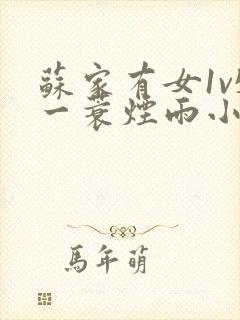 蘇家有女1v
一蓑煙雨小
馬年萌